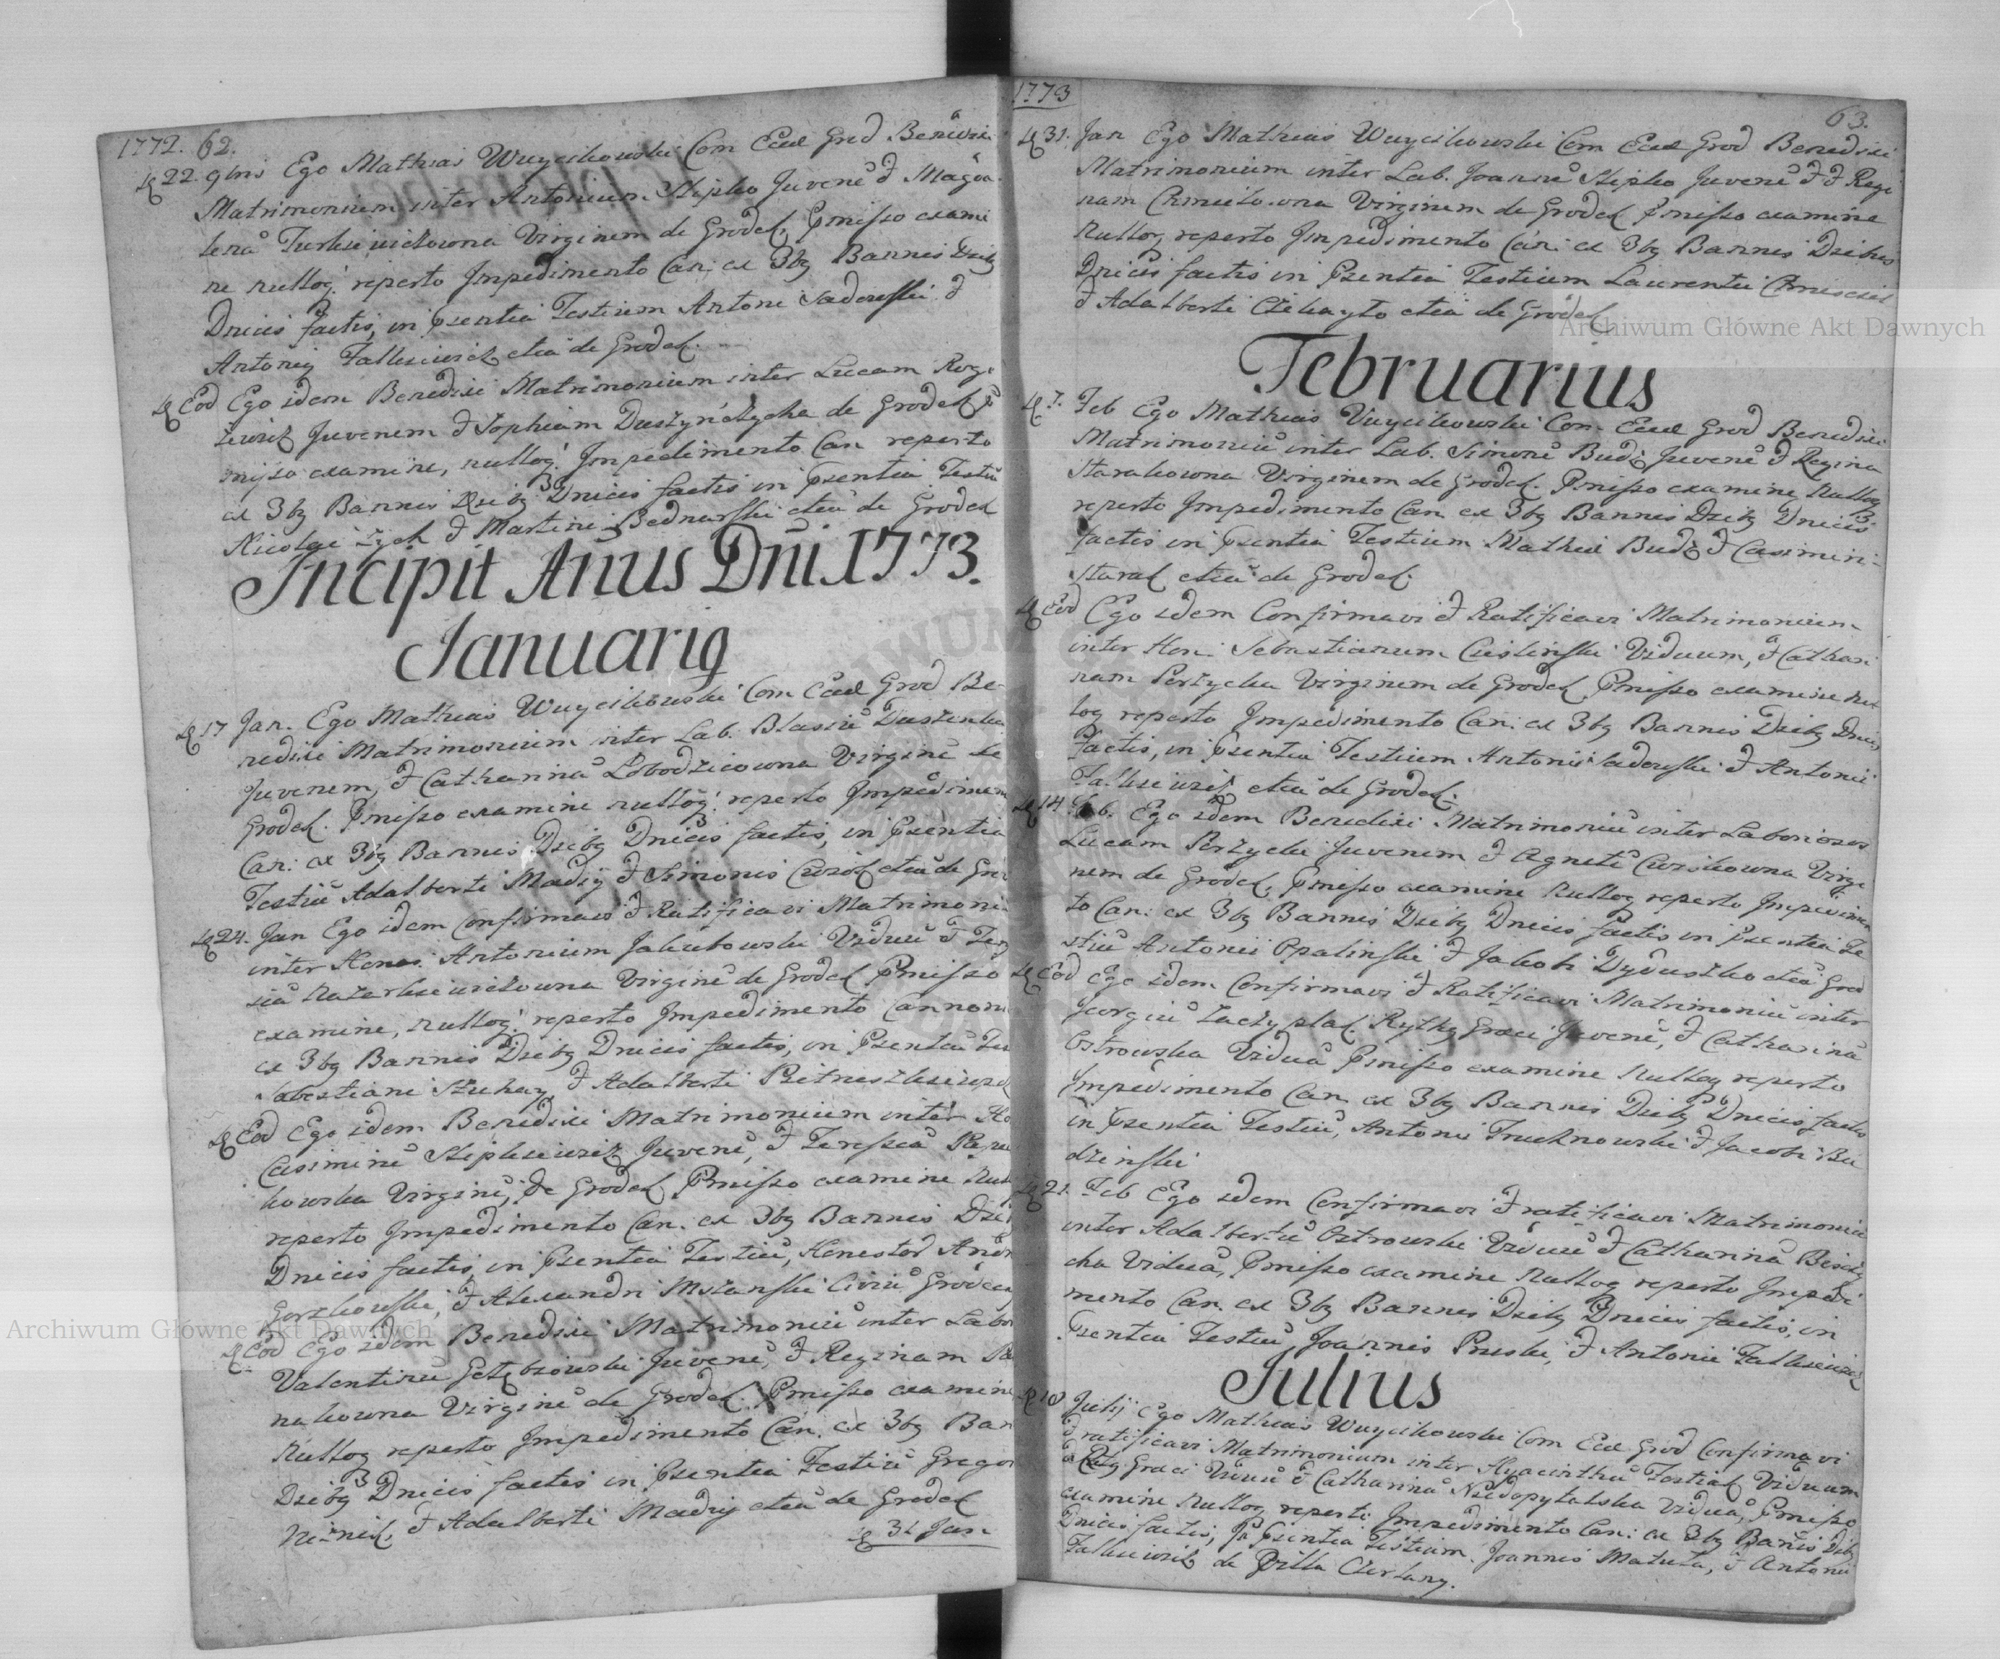 1772. 62.
22. 9bris Ego Mathias Wuycikowski Com Eccl Grod Benedixi
Matrimonium inter Antonium Stipko Juvenē & Magda
lenā Turkiewiczowna Virginem de Grodek, Pmisso exami
ne nulloq; reperto Impedimento Can: ex 3bq Bannis Dieb9
Dnicis factis, in Psentia Testium Antoni Sadowski &
Antonij Falkiewicz etiā de Grodek.
Eod Ego idem Benedixi Matrimonium inter Lucam Rog
Juvenem & Sophiam de Grodek P
misso examine, nulloq; Impedimento Can reperto
ex 3bq Bannis Dieb9 Dnicis factis in Psentia Testiū
Nicolai Zych & Martini Bednarski etiā de Grodek
Incipit Anus Dni 1773.
Januari9
17 Jan. Ego Mathias Wuycikowski Com Eccl Grod Be-
nedixi Matrimonium inter Lab. Blasiū
Juvenem, & Catharinā Lobodzicowna Virginē de
Grodek. Pmisso examine nulloq; reperto Impedimen
Can: ex 3bq Bannis Dieb9 Dnicis factis, in Psentia
Testiū Adalberti Madry & Simonis etiā de Gro
24. Jan Ego idem confirmavi & Ratificavi Matrimoni
inter Hones: Antonium Jakubowski Viduū & There
siā Virginē de Grodek Pmisso
examine, nulloq; reperto Impedimento Cannoni
ex 3bq Bannis Dieb9 Dnicis factis, in Psentiā Tes
Sabestiani & Adalberti
Eod Ego idem Benedixi Matrimonium inter Ho
Casimirū Stipkiewicz Juvenē, & Teressiā
kowska Virginē, de Grodek Pmisso examine Nul
reperto Impedimento Can: ex 3bq Bannis Die
Dnicis factis, in Psentia Testiū, Honestor Andr
Gorzkowski, & Alexandri Civiū Grodec
Eod Ego idem Benedixi Matrimoniū inter Labo
Valentinū Juvenē, & Reginam
nakowna Virginē de Grodek. Pmisso examine
Nulloq reperto Impedimento Can: ex 3bq Ban
Dieb9 Dnicis factis in Psentia Testiū Gregor
& Adalberti Madry etiā de Grodek
31 Jan.
1773
63.
31. Jan Ego Mathias Wuycikowski Com Eccl Grod Benedixi
Matrimonium inter Lab. Joannē Stipko Juvenē & & Regi
nam Virginem de Grodek Pmisso examine
Nulloq; reperto Impedimento Can: ex 3bq Bannis Diebus
Dnicis factis in Psentia Testium Laurentii
& Adalberti Czekayło etiā de Grodek
Februarius
7. Feb Ego Mathias Wuycikowski Com Eccl Grod Benedixi
Matrimoniū inter Lab. Simonē Budz Juvenē & Regina
Starakowna Virginem de Grodek. Pmisso examine, Nulloq
reperto Impedimento Can ex 3bq Bannis Dieb9 Dnicis
factis in Psentia Testium Mathiæ Budz & Casimiri
Starak etiā de Grodek.
Eod Ego idem Confirmavi & Ratificavi Matrimonium
inter Hon: Sebastianum Viduum, & Cathari
nam Perzycka Virginem de Grodek Pmisso examine nul
loq reperto Impedimento Can: ex 3bq Bannis Dieb9 Dnicis
factis, in Psentia Testium Antonii Sadowski & Antonii
Falkiewicz etiā de Grodek.
14. Feb. Ego idem Benedixi Matrimoniū inter Laboriosos
Lucam Perzycki Juvenem & Agnetē Virgi
nem de Grodek, Pmisso examine Nulloq reperto Impedimen
to Can: ex 3bq Bannis Dieb9 Dnicis factis in Psentia Te
stiū Antonii Opalinski & Jakobi etiā Grod
Eod Ego idem Confirmavi & Ratificavi Matrimoniū inter
Georgiū Rytq Græci Juvenē, & Catharinā
Ostrowska Viduā Pmisso examine Nulloq reperto
Impedimento Can ex 3bq Bannis Dieb9 Dnicis factis
in Psentia Testiū, Antoni Truchnowski & Jacobi Bu
dzinski
21. Feb Ego idem Confirmavi & ratificavi Matrimoniū
inter Adalbertū Ostrowski Viduū & Catharinā
cka Viduā, Pmisso examine Nulloq reperto Impedi
mento Can ex 3bq Bannis Dieb9 Dnicis factis, in
Psentia Testiū Joannis Pruski, & Antonii Falkiewicz
Julius
18 Julij Ego Mathias Wuycikowski Com Eccl Grod Confirmavi
& ratificavi Matrimonium inter Hyacinthū Viduum
Græci Viduū & Catharinā Niedopytalska Viduā, Pmisso
examine Nulloq reperto Impedimento Can: ex 3bq Banis Dieb
Dnicis factis, in Psentia Testium Joannis Matula, & Antonii
Falkiewicz de Villa Czerlany.
Archiwum Główne Akt Dawnych
Archiwum Główne Akt Dawnych